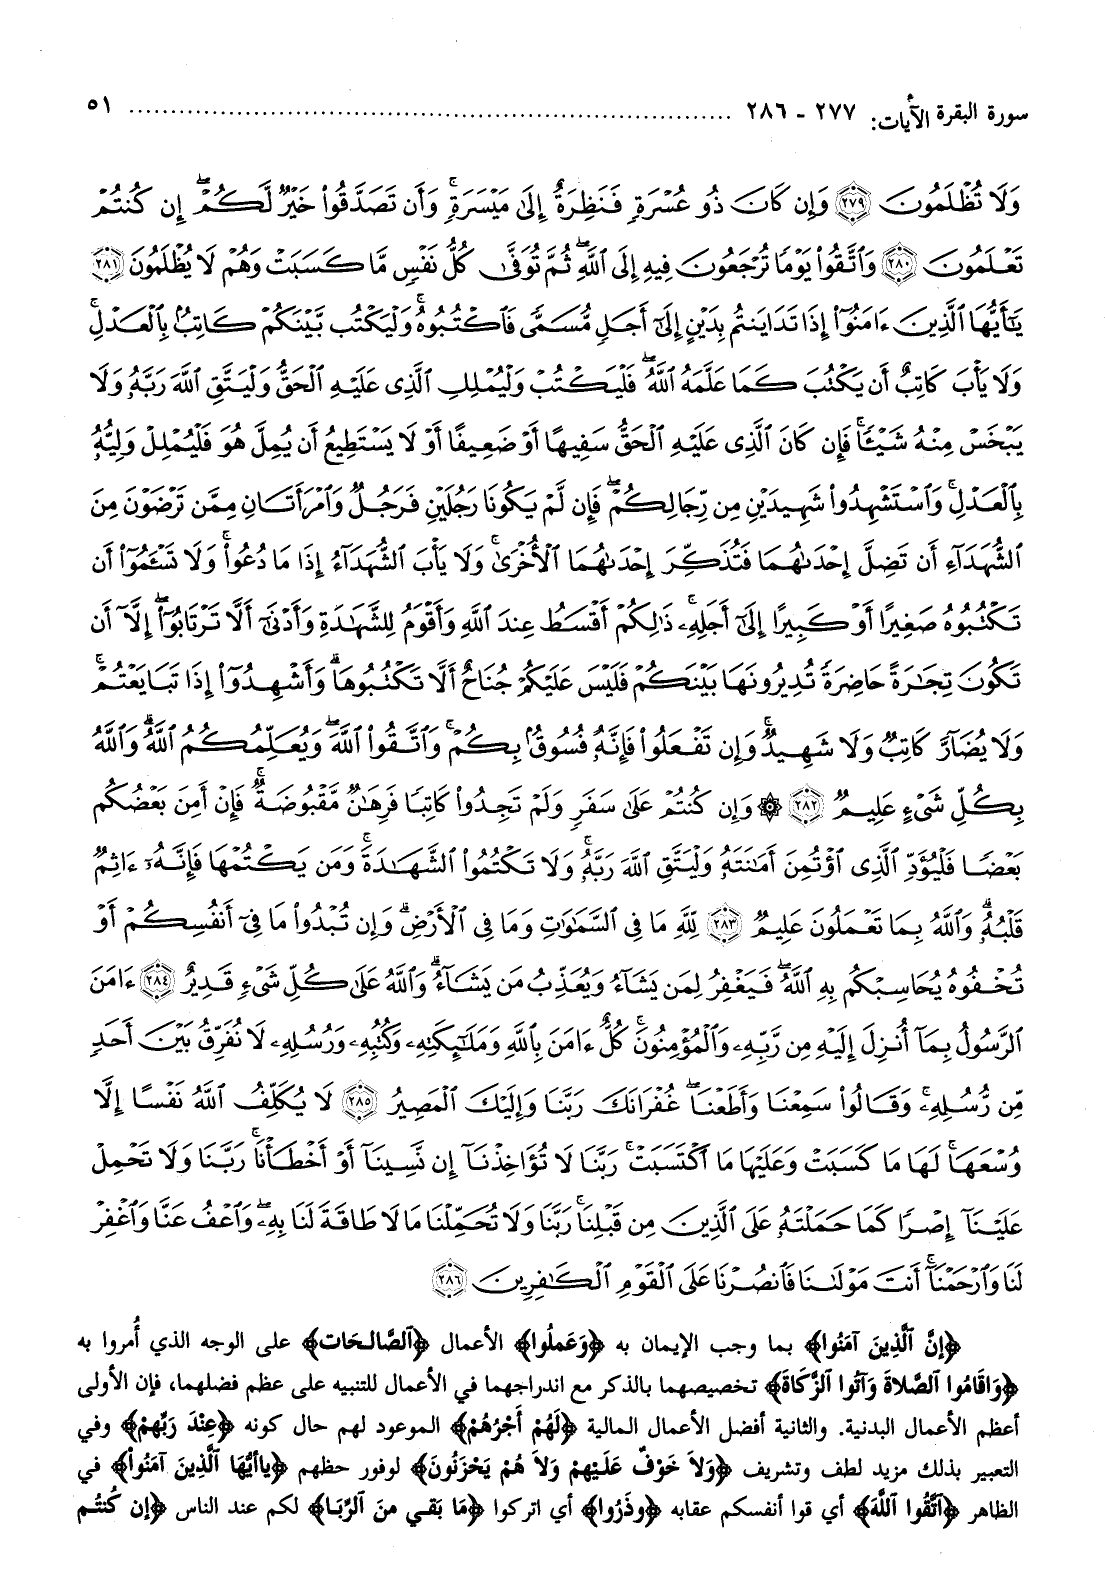 سورة البقرة الآيات: ٢٧٧ - ٢٨٦ ........................................................................ ٥١
وَلَا تُظْلَمُونَ ﴿٢٧٩﴾ وَإِن كَانَ ذُو عُسْرَةٍ فَنَظِرَةٌ إِلَىٰ مَيْسَرَةٍ ۚ وَأَن تَصَدَّقُوا۟ خَيْرٌ لَّكُمْ ۖ إِن كُنتُمْ
تَعْلَمُونَ ﴿٢٨٠﴾ وَٱتَّقُوا۟ يَوْمًا تُرْجَعُونَ فِيهِ إِلَى ٱللَّهِ ۖ ثُمَّ تُوَفَّىٰ كُلُّ نَفْسٍ مَّا كَسَبَتْ وَهُمْ لَا يُظْلَمُونَ ﴿٢٨١﴾
يَـٰٓأَيُّهَا ٱلَّذِينَ ءَامَنُوٓا۟ إِذَا تَدَايَنتُم بِدَيْنٍ إِلَىٰٓ أَجَلٍ مُّسَمًّى فَٱكْتُبُوهُ ۚ وَلْيَكْتُب بَّيْنَكُمْ كَاتِبٌۢ بِٱلْعَدْلِ ۚ
وَلَا يَأْبَ كَاتِبٌ أَن يَكْتُبَ كَمَا عَلَّمَهُ ٱللَّهُ ۚ فَلْيَكْتُبْ وَلْيُمْلِلِ ٱلَّذِى عَلَيْهِ ٱلْحَقُّ وَلْيَتَّقِ ٱللَّهَ رَبَّهُۥ وَلَا
يَبْخَسْ مِنْهُ شَيْـًٔا ۚ فَإِن كَانَ ٱلَّذِى عَلَيْهِ ٱلْحَقُّ سَفِيهًا أَوْ ضَعِيفًا أَوْ لَا يَسْتَطِيعُ أَن يُمِلَّ هُوَ فَلْيُمْلِلْ وَلِيُّهُۥ
بِٱلْعَدْلِ ۚ وَٱسْتَشْهِدُوا۟ شَهِيدَيْنِ مِن رِّجَالِكُمْ ۖ فَإِن لَّمْ يَكُونَا رَجُلَيْنِ فَرَجُلٌ وَٱمْرَأَتَانِ مِمَّن تَرْضَوْنَ مِنَ
ٱلشُّهَدَآءِ أَن تَضِلَّ إِحْدَىٰهُمَا فَتُذَكِّرَ إِحْدَىٰهُمَا ٱلْأُخْرَىٰ ۚ وَلَا يَأْبَ ٱلشُّهَدَآءُ إِذَا مَا دُعُوا۟ ۚ وَلَا تَسْـَٔمُوٓا۟ أَن
تَكْتُبُوهُ صَغِيرًا أَوْ كَبِيرًا إِلَىٰٓ أَجَلِهِۦ ۚ ذَٰلِكُمْ أَقْسَطُ عِندَ ٱللَّهِ وَأَقْوَمُ لِلشَّهَـٰدَةِ وَأَدْنَىٰٓ أَلَّا تَرْتَابُوٓا۟ ۖ إِلَّآ أَن
تَكُونَ تِجَـٰرَةً حَاضِرَةً تُدِيرُونَهَا بَيْنَكُمْ فَلَيْسَ عَلَيْكُمْ جُنَاحٌ أَلَّا تَكْتُبُوهَا ۗ وَأَشْهِدُوٓا۟ إِذَا تَبَايَعْتُمْ ۚ
وَلَا يُضَآرَّ كَاتِبٌ وَلَا شَهِيدٌ ۚ وَإِن تَفْعَلُوا۟ فَإِنَّهُۥ فُسُوقٌۢ بِكُمْ ۗ وَٱتَّقُوا۟ ٱللَّهَ ۖ وَيُعَلِّمُكُمُ ٱللَّهُ ۗ وَٱللَّهُ
بِكُلِّ شَىْءٍ عَلِيمٌ ﴿٢٨٢﴾ ۞ وَإِن كُنتُمْ عَلَىٰ سَفَرٍ وَلَمْ تَجِدُوا۟ كَاتِبًا فَرِهَـٰنٌ مَّقْبُوضَةٌ ۖ فَإِنْ أَمِنَ بَعْضُكُم
بَعْضًا فَلْيُؤَدِّ ٱلَّذِى ٱؤْتُمِنَ أَمَـٰنَتَهُۥ وَلْيَتَّقِ ٱللَّهَ رَبَّهُۥ ۗ وَلَا تَكْتُمُوا۟ ٱلشَّهَـٰدَةَ ۚ وَمَن يَكْتُمْهَا فَإِنَّهُۥٓ ءَاثِمٌ
قَلْبُهُۥ ۗ وَٱللَّهُ بِمَا تَعْمَلُونَ عَلِيمٌ ﴿٢٨٣﴾ لِّلَّهِ مَا فِى ٱلسَّمَـٰوَٰتِ وَمَا فِى ٱلْأَرْضِ ۗ وَإِن تُبْدُوا۟ مَا فِىٓ أَنفُسِكُمْ أَوْ
تُخْفُوهُ يُحَاسِبْكُم بِهِ ٱللَّهُ ۖ فَيَغْفِرُ لِمَن يَشَآءُ وَيُعَذِّبُ مَن يَشَآءُ ۗ وَٱللَّهُ عَلَىٰ كُلِّ شَىْءٍ قَدِيرٌ ﴿٢٨٤﴾ ءَامَنَ
ٱلرَّسُولُ بِمَآ أُنزِلَ إِلَيْهِ مِن رَّبِّهِۦ وَٱلْمُؤْمِنُونَ ۚ كُلٌّ ءَامَنَ بِٱللَّهِ وَمَلَـٰٓئِكَتِهِۦ وَكُتُبِهِۦ وَرُسُلِهِۦ لَا نُفَرِّقُ بَيْنَ أَحَدٍ
مِّن رُّسُلِهِۦ ۚ وَقَالُوا۟ سَمِعْنَا وَأَطَعْنَا ۖ غُفْرَانَكَ رَبَّنَا وَإِلَيْكَ ٱلْمَصِيرُ ﴿٢٨٥﴾ لَا يُكَلِّفُ ٱللَّهُ نَفْسًا إِلَّا
وُسْعَهَا ۚ لَهَا مَا كَسَبَتْ وَعَلَيْهَا مَا ٱكْتَسَبَتْ ۗ رَبَّنَا لَا تُؤَاخِذْنَآ إِن نَّسِينَآ أَوْ أَخْطَأْنَا ۚ رَبَّنَا وَلَا تَحْمِلْ
عَلَيْنَآ إِصْرًا كَمَا حَمَلْتَهُۥ عَلَى ٱلَّذِينَ مِن قَبْلِنَا ۚ رَبَّنَا وَلَا تُحَمِّلْنَا مَا لَا طَاقَةَ لَنَا بِهِۦ ۖ وَٱعْفُ عَنَّا وَٱغْفِرْ
لَنَا وَٱرْحَمْنَآ ۚ أَنتَ مَوْلَىٰنَا فَٱنصُرْنَا عَلَى ٱلْقَوْمِ ٱلْكَـٰفِرِينَ ﴿٢٨٦﴾
﴿إِنَّ ٱلَّذِينَ آمَنُوا﴾ بما وجب الإيمان به ﴿وَعَمِلُوا﴾ الأعمال ﴿ٱلصَّالِحَات﴾ على الوجه الذي أُمروا به
﴿وَأَقَامُوا ٱلصَّلاَةَ وَآتُوا ٱلزَّكَاةَ﴾ تخصيصهما بالذكر مع اندراجهما في الأعمال للتنبيه على عظم فضلهما، فإن الأولى
أعظم الأعمال البدنية. والثانية أفضل الأعمال المالية ﴿لَهُمْ أَجْرُهُمْ﴾ الموعود لهم حال كونه ﴿عِنْدَ رَبِّهِمْ﴾ وفي
التعبير بذلك مزيد لطف وتشريف ﴿وَلاَ خَوْفٌ عَلَيْهِمْ وَلاَ هُمْ يَحْزَنُونَ﴾ لوفور حظهم ﴿يَاأَيُّهَا ٱلَّذِينَ آمَنُوا﴾ في
الظاهر ﴿ٱتَّقُوا ٱللَّهَ﴾ أي قوا أنفسكم عقابه ﴿وذَرُوا﴾ أي اتركوا ﴿مَا بَقِيَ مِنَ ٱلرِّبَا﴾ لكم عند الناس ﴿إِن كُنتُم